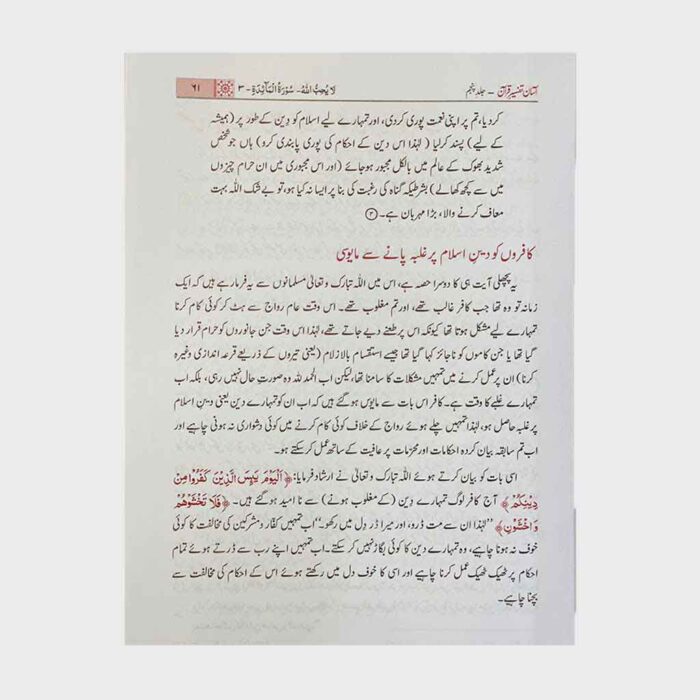 آسان تفسیر قرآن – جلد پنجم
لَا يُحِبُّ اللهُ- سُوْرَةُ الْمَآئِدَةِ - ٣
٦١
کردیا، تم پر اپنی نعمت پوری کردی، اور تمہارے لیے اسلام کو دِین کے طور پر (ہمیشہ
کے لیے) پسند کرلیا (لہٰذا اس دین کے احکام کی پوری پابندی کرو) ہاں جو شخص
شدید بھوک کے عالم میں بالکل مجبور ہوجائے (اور اس مجبوری میں ان حرام چیزوں
میں سے کچھ کھالے) بشرطیکہ گناہ کی رغبت کی بنا پر ایسا نہ کیا ہو، تو بے شک اللہ بہت
معاف کرنے والا، بڑا مہربان ہے۔ ③
کافروں کو دینِ اسلام پر غلبہ پانے سے مایوسی
یہ پچھلی آیت ہی کا دوسرا حصہ ہے، اس میں اللہ تبارک وتعالیٰ مسلمانوں سے یہ فرمارہے ہیں کہ ایک
زمانہ تو وہ تھا جب کافر غالب تھے، اور تم مغلوب تھے۔ اس وقت عام رواج سے ہٹ کر کوئی کام کرنا
تمہارے لیے مشکل ہوتا تھا کیونکہ اس پر طعنے دیے جاتے تھے، لہٰذا اس وقت جن جانوروں کو حرام قرار دیا
گیا تھا یا جن کاموں کو ناجائز کہا گیا تھا جیسے استقسام بالازلام (یعنی تیروں کے ذریعے قرعہ اندازی وغیرہ
کرنا) ان پر عمل کرنے میں تمہیں مشکلات کا سامنا تھا، لیکن اب الحمد للہ وہ صورتِ حال نہیں رہی، بلکہ اب
تمہارے غلبے کا وقت ہے۔ کافر اس بات سے مایوس ہوگئے ہیں کہ اب ان کو تمہارے دین یعنی دینِ اسلام
پر غلبہ حاصل ہو، لہٰذا تمہیں چلے ہوئے رواج کے خلاف کوئی کام کرنے میں کوئی دشواری نہ ہونی چاہیے اور
اب تم سابقہ بیان کردہ احکامات اور محرّمات پر عافیت کے ساتھ عمل کرسکتے ہو۔
اسی بات کو بیان کرتے ہوئے اللہ تبارک وتعالیٰ نے ارشاد فرمایا: ﴿اَلْيَوْمَ يَئِسَ الَّذِيْنَ كَفَرُوْا مِنْ
دِيْنِكُمْ﴾ آج کافر لوگ تمہارے دین (کے مغلوب ہونے) سے نا امید ہوگئے ہیں۔ ﴿فَلَا تَخْشَوْهُمْ
وَاخْشَوْنِ﴾ ”لہٰذا ان سے مت ڈرو، اور میرا ڈر دل میں رکھو۔“ اب تمہیں کفّار ومشرکین کی مخالفت کا کوئی
خوف نہ ہونا چاہیے، وہ تمہارے دین کا کوئی بگاڑ نہیں کرسکتے۔ اب تمہیں اپنے رب سے ڈرتے ہوئے تمام
احکام پر ٹھیک ٹھیک عمل کرنا چاہیے اور اسی کا خوف دل میں رکھتے ہوئے اس کے احکام کی مخالفت سے
بچنا چاہیے۔